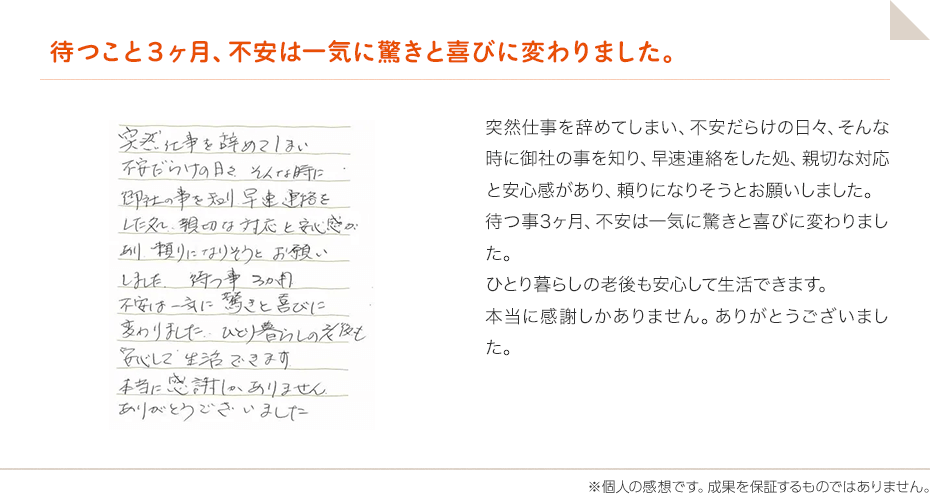 待つこと３ヶ月、不安は一気に驚きと喜びに変わりました。
突然仕事を辞めてしまい
不安だらけの日々 そんな時に
御社の事を知り 早速連絡を
した処、親切な対応と安心感が
あり、頼りになりそうと お願い
しました 待つ事 3か月
不安は一気に 驚きと喜びに
変わりました。ひとり暮らしの老後も
安心して 生活できます
本当に感謝しかありません
ありがとうございました
突然仕事を辞めてしまい、不安だらけの日々、そんな
時に御社の事を知り、早速連絡をした処、親切な対応
と安心感があり、頼りになりそうとお願いしました。
待つ事3ヶ月、不安は一気に驚きと喜びに変わりまし
た。
ひとり暮らしの老後も安心して生活できます。
本当に感謝しかありません。ありがとうございまし
た。
※個人の感想です。成果を保証するものではありません。